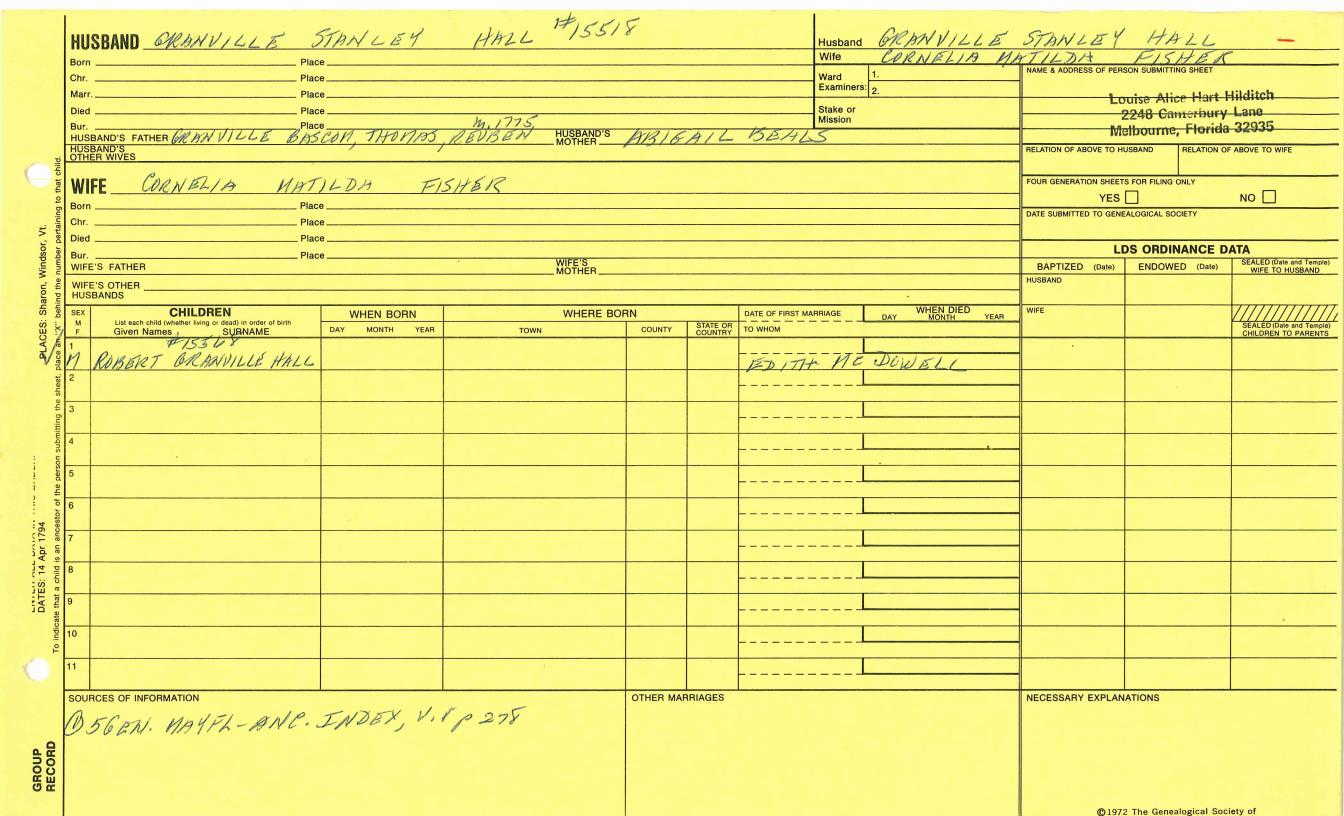 HUSBAND GRANVILLE STANLEY HALL #15518
Born Place
Chr. Place
Marr. Place
Died Place
Bur. Place m. 1775
HUSBAND'S FATHER GRANVILLE BASCOM, THOMAS, REUBEN HUSBAND'S MOTHER ABIGAIL BEALS
HUSBAND'S OTHER WIVES
Husband GRANVILLE STANLEY HALL
Wife CORNELIA MATILDA FISHER
Ward Examiners: 1. 2.
Stake or Mission
NAME & ADDRESS OF PERSON SUBMITTING SHEET
Louise Alice Hart Hilditch
2248 Canterbury Lane
Melbourne, Florida 32935
RELATION OF ABOVE TO HUSBAND RELATION OF ABOVE TO WIFE
FOUR GENERATION SHEETS FOR FILING ONLY
YES NO
DATE SUBMITTED TO GENEALOGICAL SOCIETY
WIFE CORNELIA MATILDA FISHER
Born Place
Chr. Place
Died Place
Bur. Place
WIFE'S FATHER WIFE'S MOTHER
WIFE'S OTHER HUSBANDS
LDS ORDINANCE DATA
BAPTIZED (Date) ENDOWED (Date) SEALED (Date and Temple) WIFE TO HUSBAND
HUSBAND
WIFE
SEALED (Date and Temple) CHILDREN TO PARENTS
SEX M F
CHILDREN
List each child (whether living or dead) in order of birth
Given Names SURNAME
WHEN BORN
DAY MONTH YEAR
WHERE BORN
TOWN COUNTY STATE OR COUNTRY
DATE OF FIRST MARRIAGE
TO WHOM
WHEN DIED
DAY MONTH YEAR
1 #15568
M ROBERT GRANVILLE HALL EDITH MC DOWELL
2
3
4
5
6
7
8
9
10
11
SOURCES OF INFORMATION
① 5GEN. MAYFL-ANC. INDEX, V.8 p 278
OTHER MARRIAGES
NECESSARY EXPLANATIONS
©1972 The Genealogical Society of
PLACES: Sharon, Windsor, Vt.
DATES: 14 Apr 1794
To indicate that a child is an ancestor of the person submitting the sheet, place an "X" behind the number pertaining to that child.
GROUP
RECORD